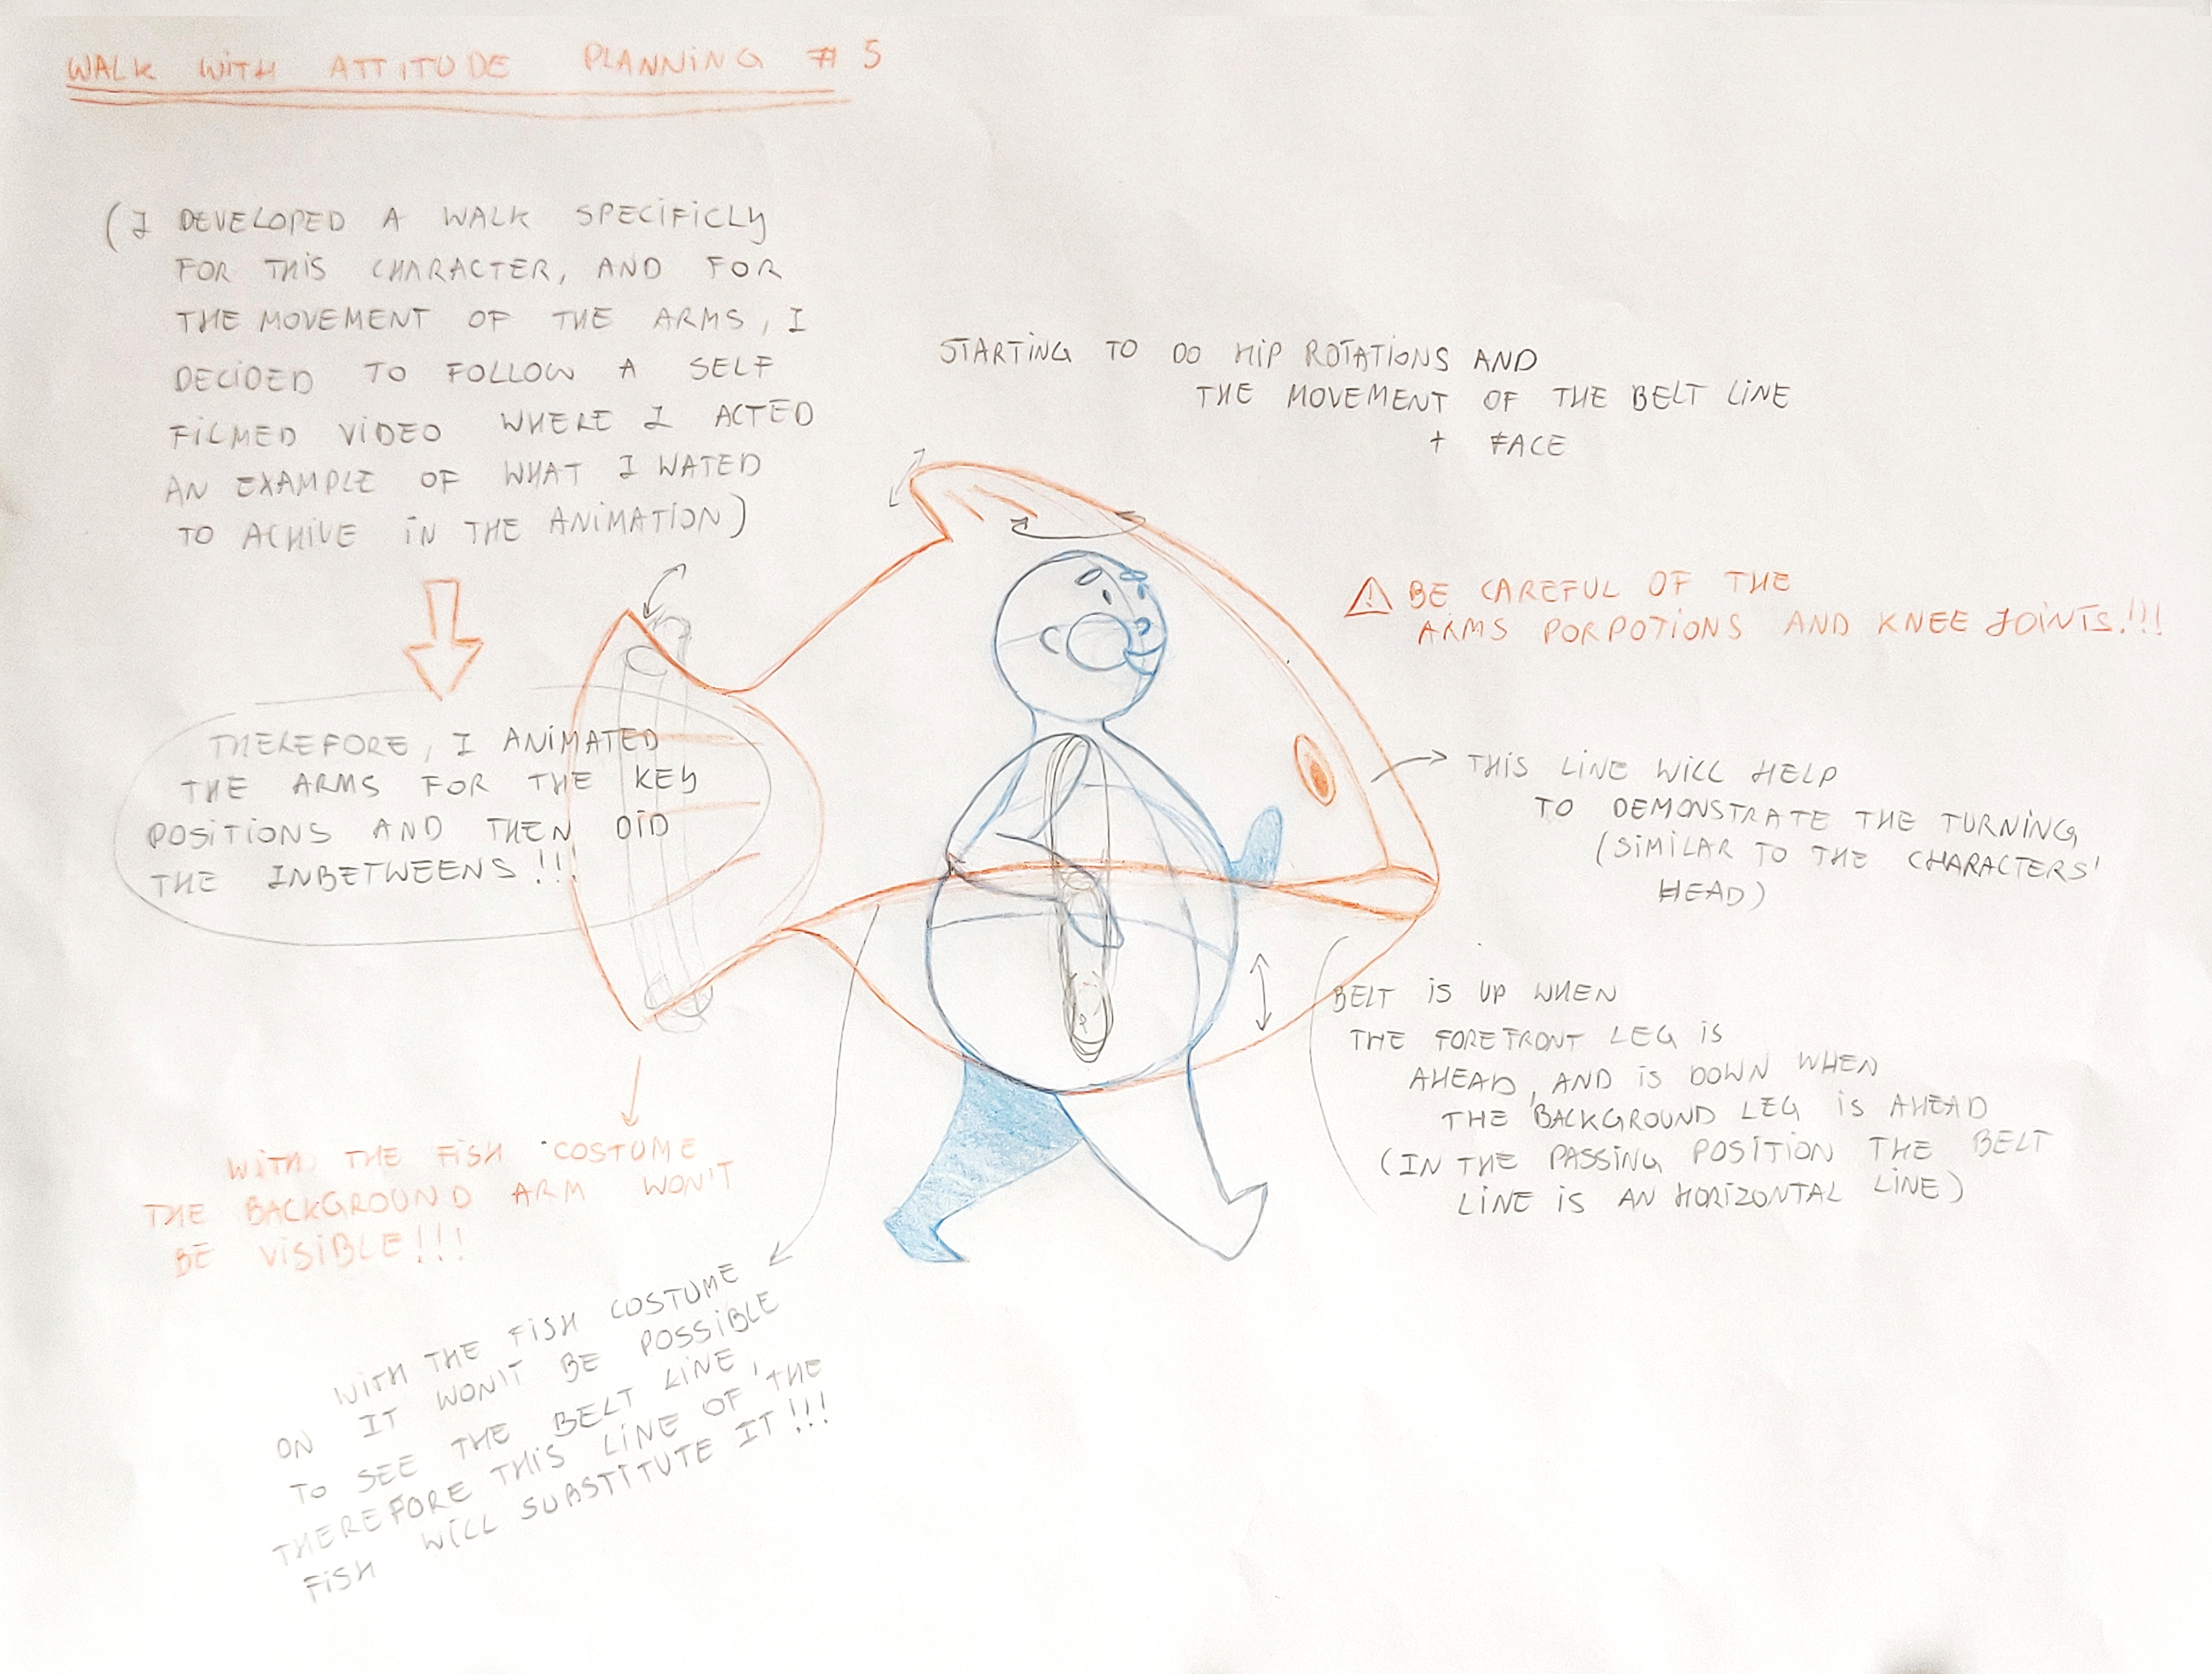 WALK WITH ATTITUDE PLANNING # 5
(I DEVELOPED A WALK SPECIFICLY
FOR THIS CHARACTER, AND FOR
THE MOVEMENT OF THE ARMS, I
DECIDED TO FOLLOW A SELF
FILMED VIDEO WHERE I ACTED
AN EXAMPLE OF WHAT I WATED
TO ACHIVE IN THE ANIMATION)
THEREFORE, I ANIMATED
THE ARMS FOR THE KEY
POSITIONS AND THEN DID
THE INBETWEENS!!!
WITH THE FISH COSTUME
THE BACKGROUND ARM WON'T
BE VISIBLE!!!
WITH THE FISH COSTUME
ON IT WON'T BE POSSIBLE
TO SEE THE BELT LINE,
THEREFORE THIS LINE OF THE
FISH WILL SUBSTITUTE IT!!!
STARTING TO DO HIP ROTATIONS AND
THE MOVEMENT OF THE BELT LINE
+ FACE
⚠ BE CAREFUL OF THE
ARMS PORPOTIONS AND KNEE JOINTS!!!
THIS LINE WILL HELP
TO DEMONSTRATE THE TURNING
(SIMILAR TO THE CHARACTERS'
HEAD)
BELT IS UP WHEN
THE FOREFRONT LEG IS
AHEAD, AND IS DOWN WHEN
THE BACKGROUND LEG IS AHEAD
(IN THE PASSING POSITION THE BELT
LINE IS AN HORIZONTAL LINE)